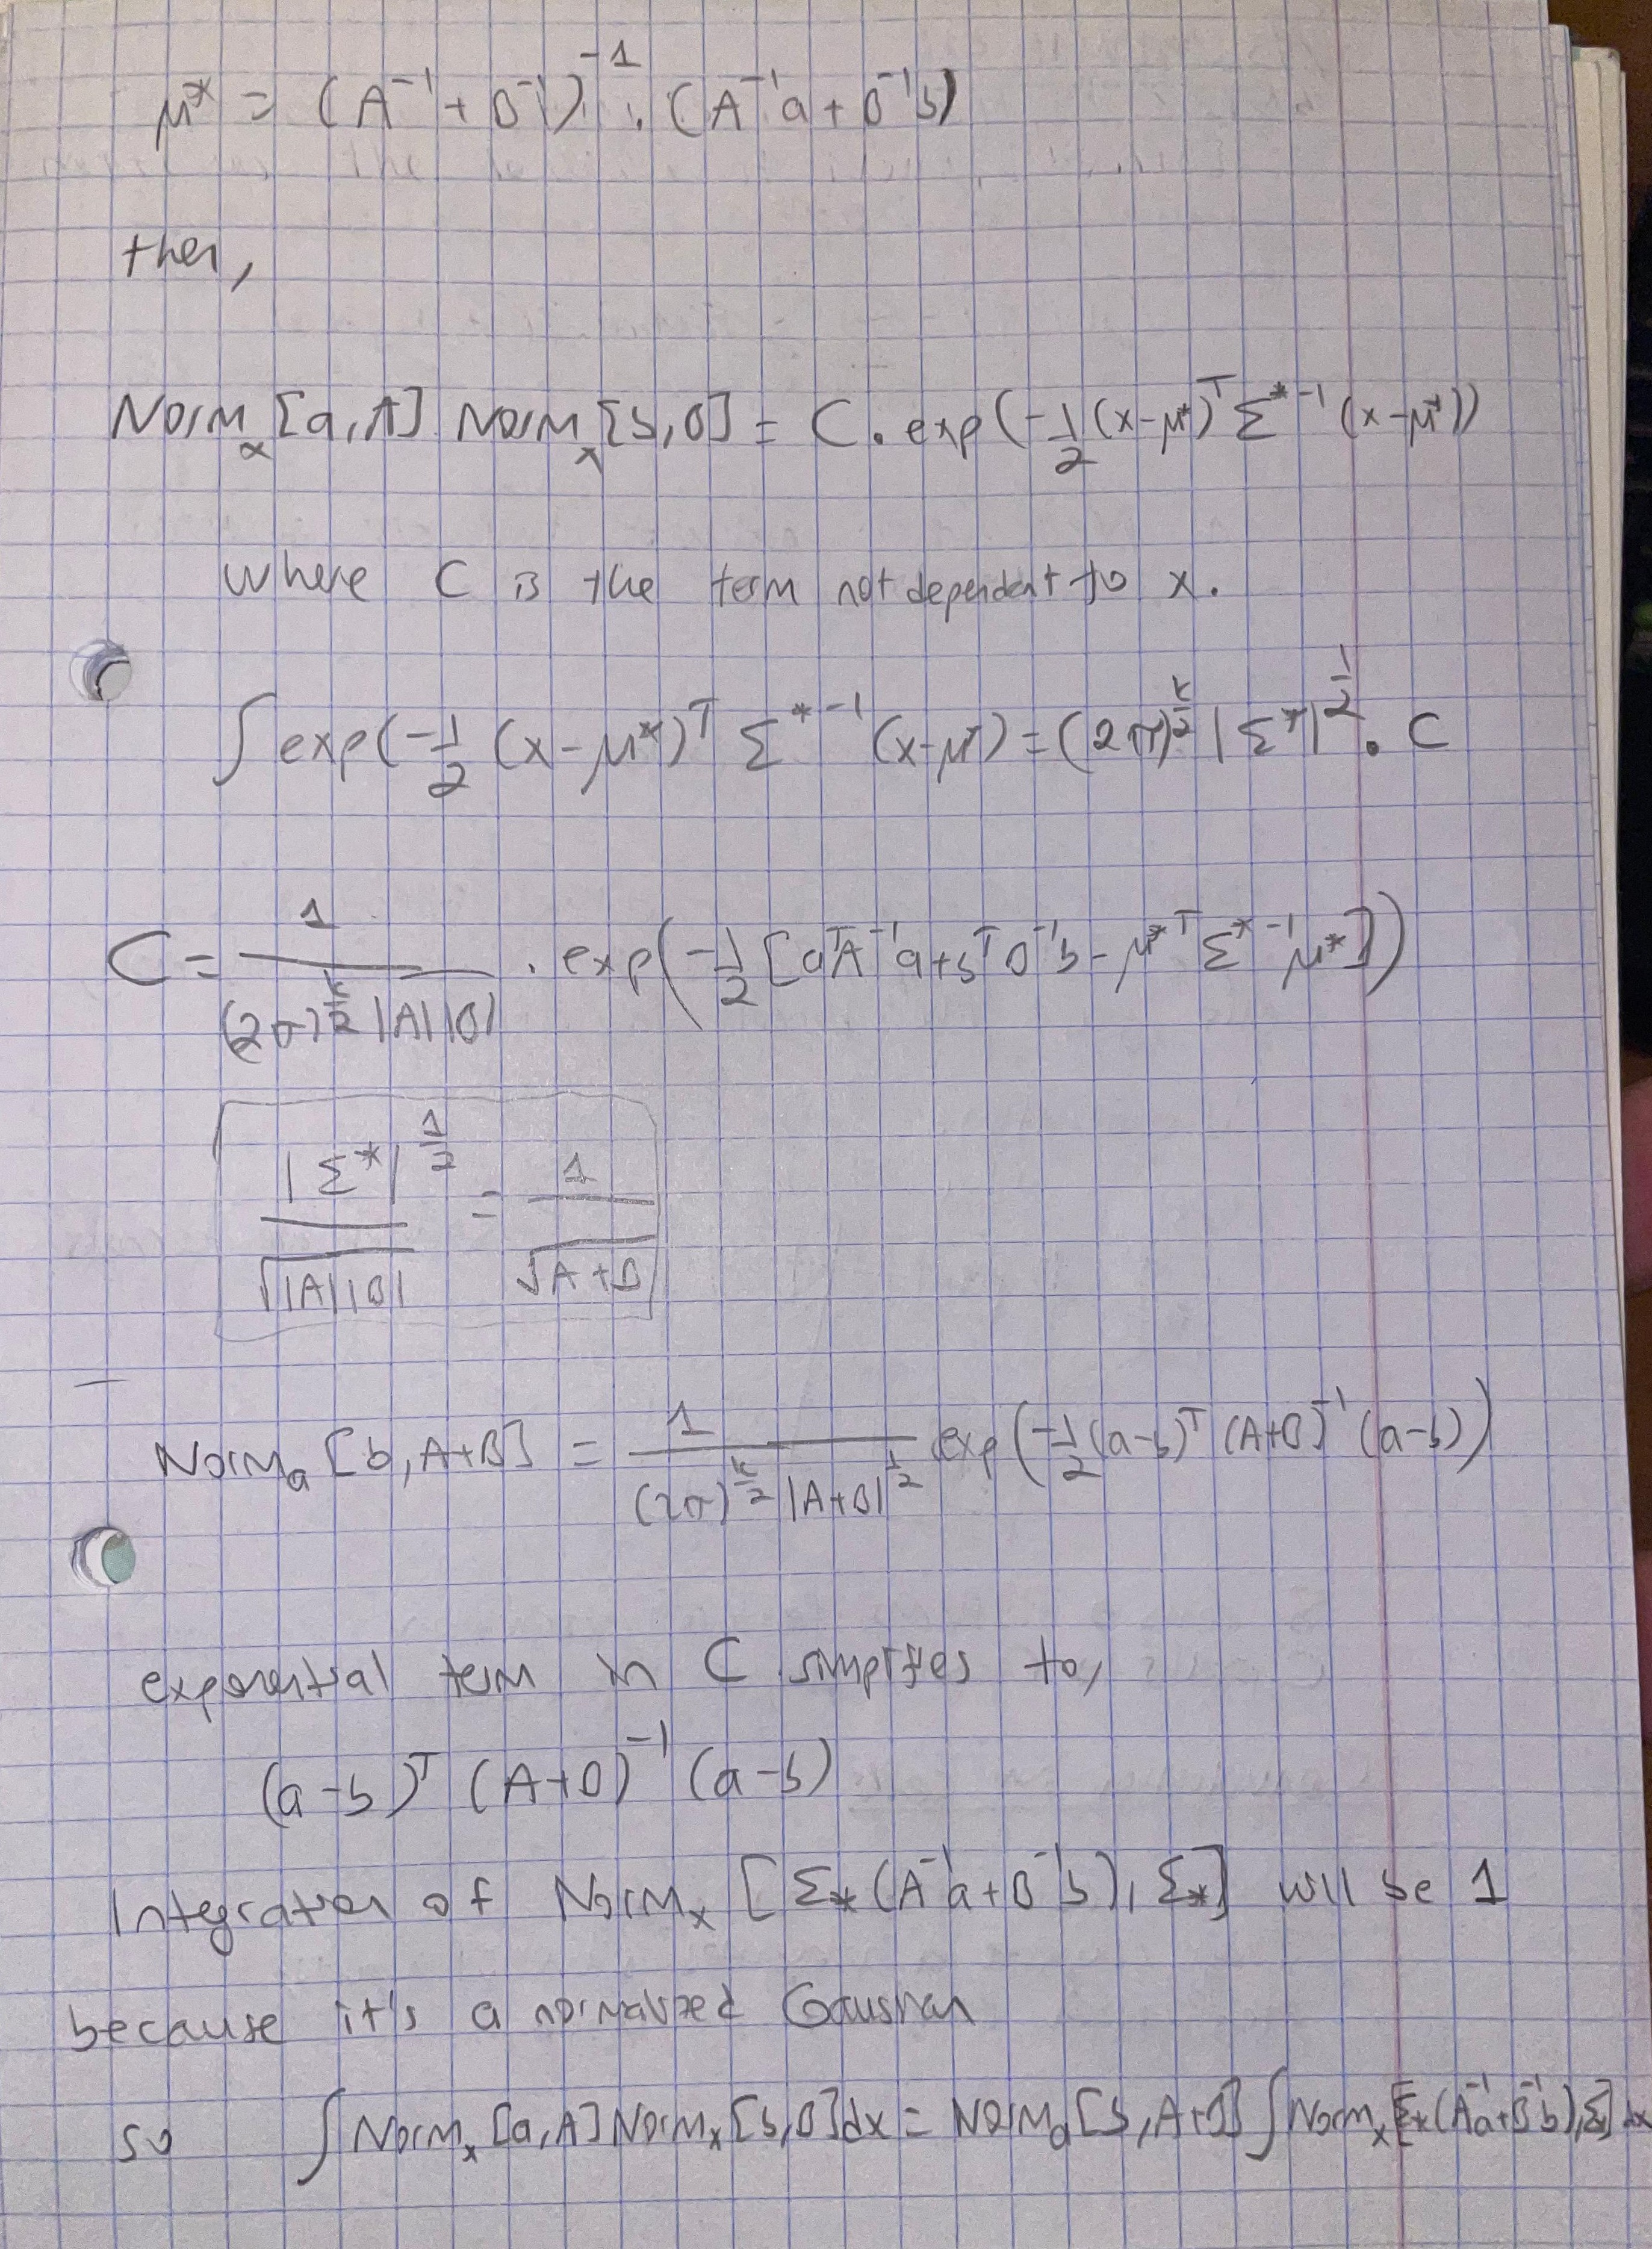 μ* = (A⁻¹ + B⁻¹)⁻¹ . (A⁻¹a + B⁻¹b)
then,
Normₓ[a,A] Normₓ[b,B] = C . exp(-1/2 (x-μ*)ᵀ Σ*⁻¹ (x-μ*))
where C is the term not dependent to x.
∫ exp(-1/2 (x-μ*)ᵀ Σ*⁻¹ (x-μ*) = (2π)^(k/2) |Σ*|^(1/2) . C
C = 1/((2π)^(k/2) |A||B|) . exp(-1/2 [aᵀA⁻¹a + bᵀB⁻¹b - μ*ᵀ Σ*⁻¹ μ*])
|Σ*|^(1/2) / √(|A||B|) = 1/√(A+B)
Normₐ[b, A+B] = 1/((2π)^(k/2) |A+B|^(1/2)) exp(-1/2 (a-b)ᵀ (A+B)⁻¹ (a-b))
exponential term in C simplifies to,
(a-b)ᵀ (A+B)⁻¹ (a-b)
Integration of Normₓ [Σ*(A⁻¹a + B⁻¹b), Σ*] will be 1
because it's a normalized Gaussian
so ∫ Normₓ[a,A] Normₓ[b,B] dx = Normₐ[b, A+B] ∫ Normₓ[Σ*(A⁻¹a + B⁻¹b), Σ*] dx